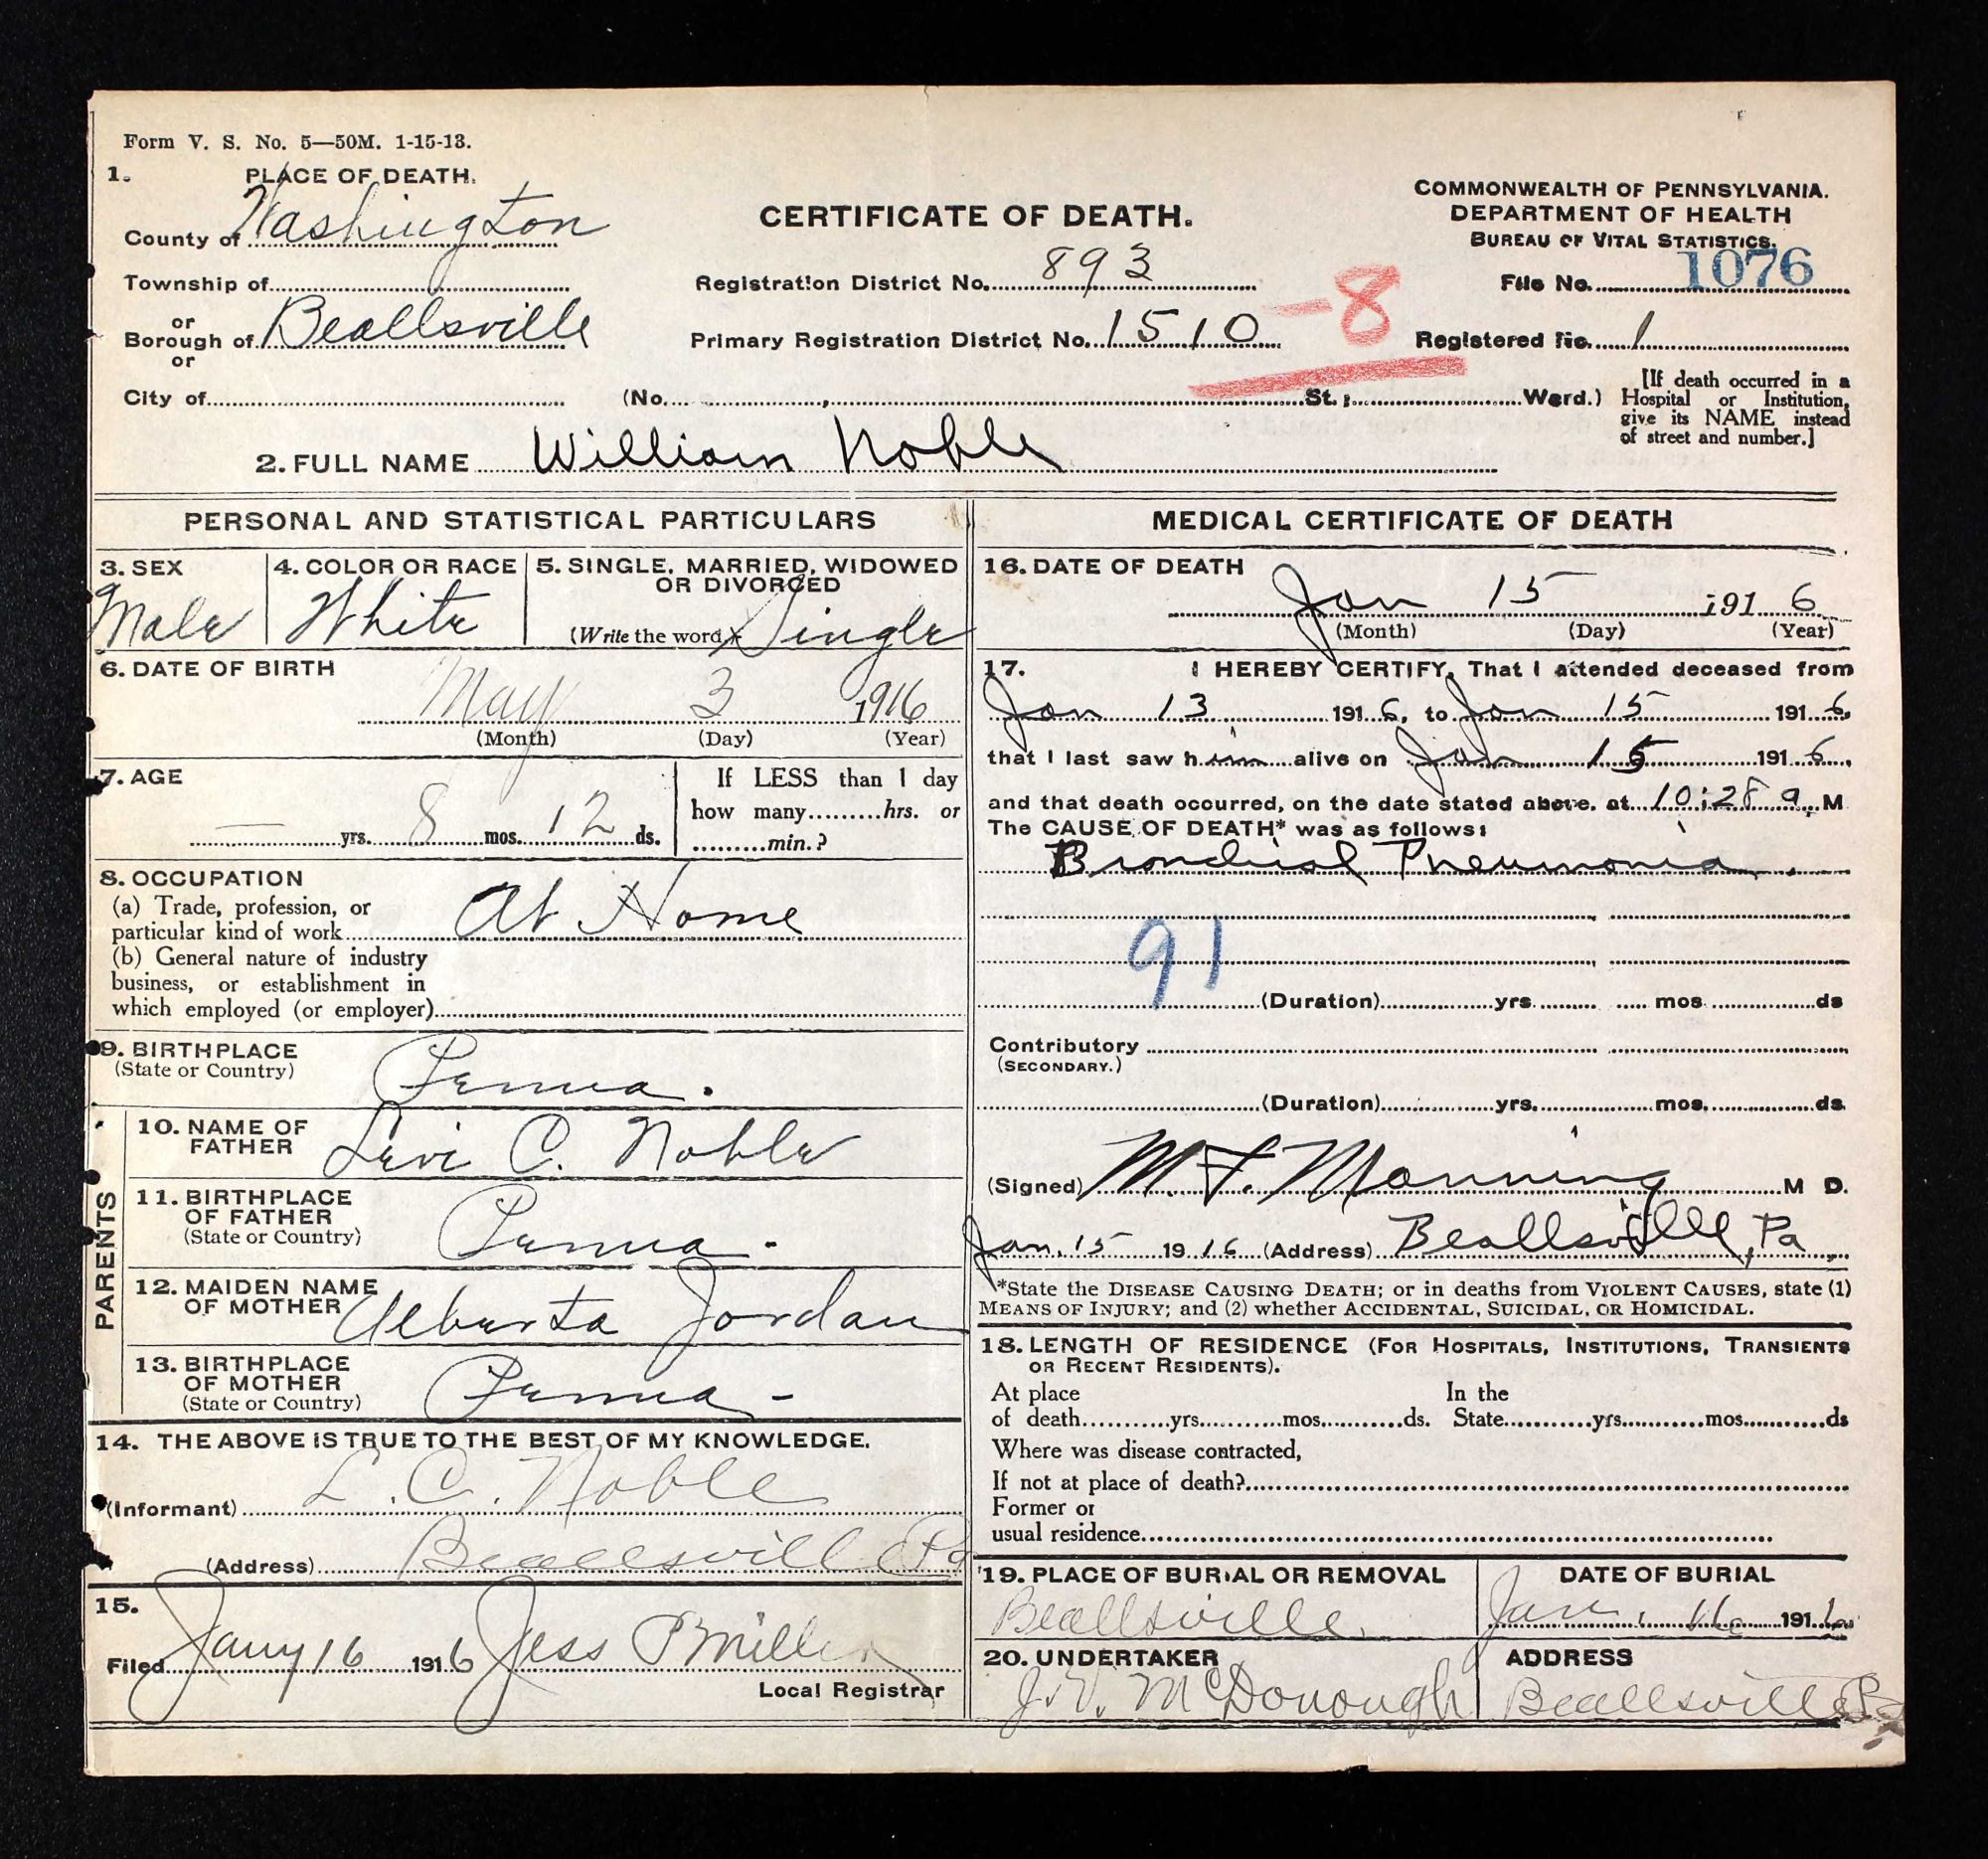 Form V. S. No. 5—50M. 1-15-13.
1. PLACE OF DEATH.
County of Washington
Township of
or
Borough of Beallsville
or
City of
CERTIFICATE OF DEATH.
Registration District No. 893
Primary Registration District No. 1510 -8
(No. , St.; Ward.)
COMMONWEALTH OF PENNSYLVANIA.
DEPARTMENT OF HEALTH
BUREAU OF VITAL STATISTICS.
File No. 1076
Registered No. 1
[If death occurred in a
Hospital or Institution,
give its NAME instead
of street and number.]
2. FULL NAME William Noble
PERSONAL AND STATISTICAL PARTICULARS
3. SEX
Male
4. COLOR OR RACE
White
5. SINGLE, MARRIED, WIDOWED
OR DIVORCED
(Write the word) Single
6. DATE OF BIRTH
May 3 1916
(Month) (Day) (Year)
7. AGE
— yrs. 8 mos. 12 ds.
If LESS than 1 day
how many hrs. or
min.?
8. OCCUPATION
(a) Trade, profession, or
particular kind of work At Home
(b) General nature of industry
business, or establishment in
which employed (or employer)
9. BIRTHPLACE
(State or Country) Penna.
PARENTS
10. NAME OF
FATHER Levi C. Noble
11. BIRTHPLACE
OF FATHER
(State or Country) Penna.
12. MAIDEN NAME
OF MOTHER Alberta Jordan
13. BIRTHPLACE
OF MOTHER
(State or Country) Penna -
14. THE ABOVE IS TRUE TO THE BEST OF MY KNOWLEDGE.
(Informant) L. C. Noble
(Address) Beallsville Pa
15.
Filed Jany 16 1916 Jess P Miller
Local Registrar
MEDICAL CERTIFICATE OF DEATH
16. DATE OF DEATH
Jan 15 1916
(Month) (Day) (Year)
17. I HEREBY CERTIFY, That I attended deceased from
Jan 13 1916, to Jan 15 1916,
that I last saw him alive on Jan 15 1916,
and that death occurred, on the date stated above, at 10:28 a. M
The CAUSE OF DEATH* was as follows:
Bronchial Pneumonia
91
(Duration) yrs. mos ds
Contributory
(SECONDARY.)
(Duration) yrs. mos. ds.
(Signed) M. F. Manning M D.
Jan. 15 1916 (Address) Beallsville, Pa
*State the DISEASE CAUSING DEATH; or in deaths from VIOLENT CAUSES, state (1)
MEANS OF INJURY; and (2) whether ACCIDENTAL, SUICIDAL, OR HOMICIDAL.
18. LENGTH OF RESIDENCE (FOR HOSPITALS, INSTITUTIONS, TRANSIENTS
OR RECENT RESIDENTS).
At place In the
of death yrs. mos. ds. State yrs. mos. ds
Where was disease contracted,
If not at place of death?
Former or
usual residence
19. PLACE OF BURIAL OR REMOVAL
Beallsville
DATE OF BURIAL
Jan. 16 1916
20. UNDERTAKER
J. V. McDonough
ADDRESS
Beallsville Pa